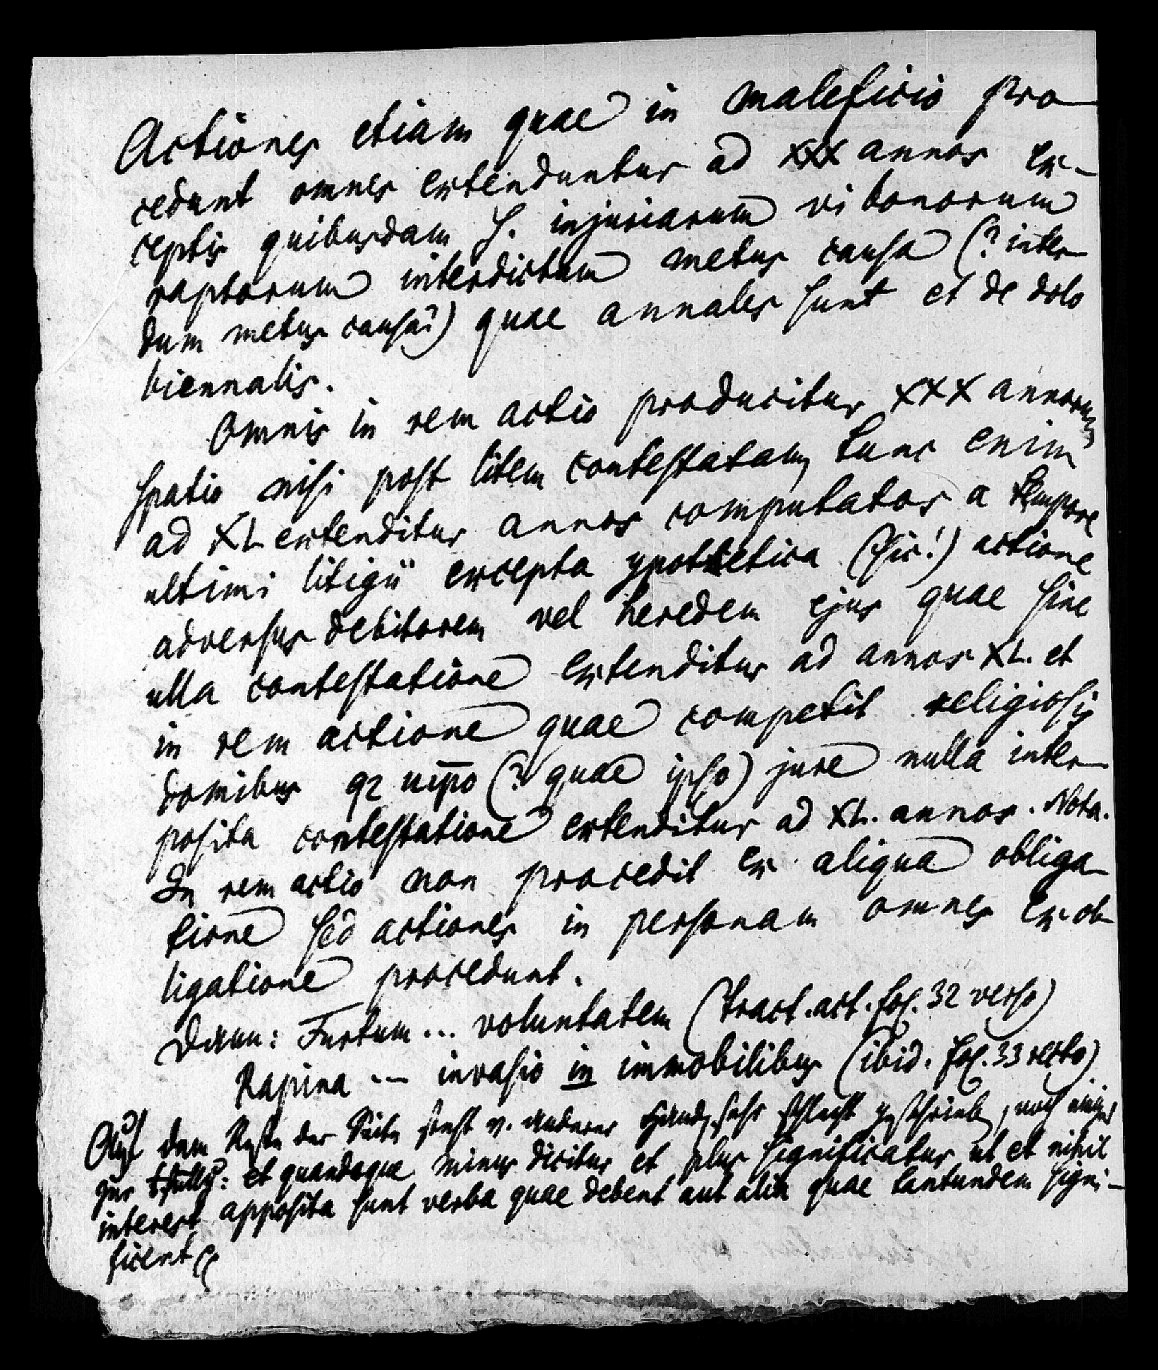 Actiones etiam quae in maleficio pro-
cedunt omnes extenduntur ad XXX annos ex-
ceptis quibusdam s. injuriarum vi bonorum
raptorum interdictum metus causa (? inter-
dum metus causa?) quae annales sunt et de dolo
biennalis.
Omnis in rem actio producitur XXX annorum
spatio nisi post litem contestatam, tunc enim
ad XL extenditur annos computatos a tempore
ultimi litigii excepta ypothetica (sic!) actione
adversus debitorem vel heredem ejus quae sine
ulla contestatione extenditur ad annos XL. et
in rem actione quae competit religiosis
domibus q2 uipo (? quae ipso) jure nulla inter-
posita contestatione extenditur ad XL. annos. Nota.
In rem actio non procedit ex aliqua obliga-
tione sed actiones in personam omnes ex ob-
ligatione procedunt.
Dann: Furtum ... voluntatem (Tract. act. fol. 32 verso)
Rapina --- invasio in immobilibus (ibid. fol. 33 recto)
Auf dem Reste der Seite steht v. anderer Hand, sehr schlecht geschrieben, noch
zur : et quandoque minus dicitur et plus significatur ut et nihil
interest apposita sunt verba quae debent aut alia quae tantundem signi-
ficent